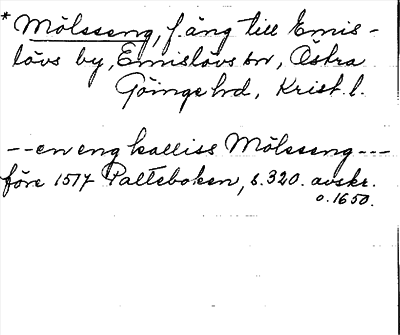 * Mölsseng, f. äng till Emis-
lövs by, Emislövs sn, Östra
Göinge hd, Krist. l.
--en eng kalliss Mölsseng---
före 1517 Palteboken, s. 320. avskr.
o. 1650.